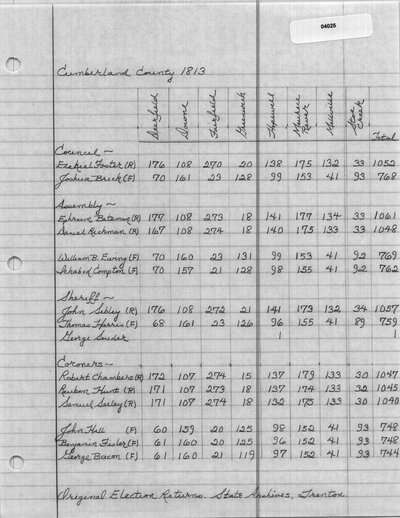 04025
Cumberland County 1813
Deerfield Downe Fairfield Greenwich Hopewell Maurice River Millville Stow Creek Total
Council ~
Ezekiel Foster (R) 176 108 270 20 138 175 132 33 1052
Joshua Brick (F) 70 161 23 128 99 153 41 93 768
Assembly ~
Ephraim Bateman (R) 177 108 273 18 141 177 134 33 1061
Daniel Richman (R) 167 108 274 18 140 175 133 33 1048
William B. Ewing (F) 70 160 23 131 99 153 41 92 769
Ichabod Compton (F) 70 157 21 128 98 155 41 92 762
Sheriff ~
John Sibley (R) 176 108 272 21 141 173 132 34 1057
Thomas Harris (F) 68 161 23 126 96 155 41 89 759
George Souder 1 1
Coroners ~
Robert Chambers (R) 172 107 274 15 137 179 133 30 1047
Reuben Hunt (R) 171 107 273 18 137 174 133 32 1045
Samuel Seeley (R) 171 107 274 18 132 175 133 30 1040
John Hall (F) 60 159 20 125 98 152 41 93 748
Benjamin Fisler (F) 61 160 20 125 96 152 41 93 748
George Bacon (F) 61 160 21 119 97 152 41 93 744
Original Election Returns. State Archives, Trenton.